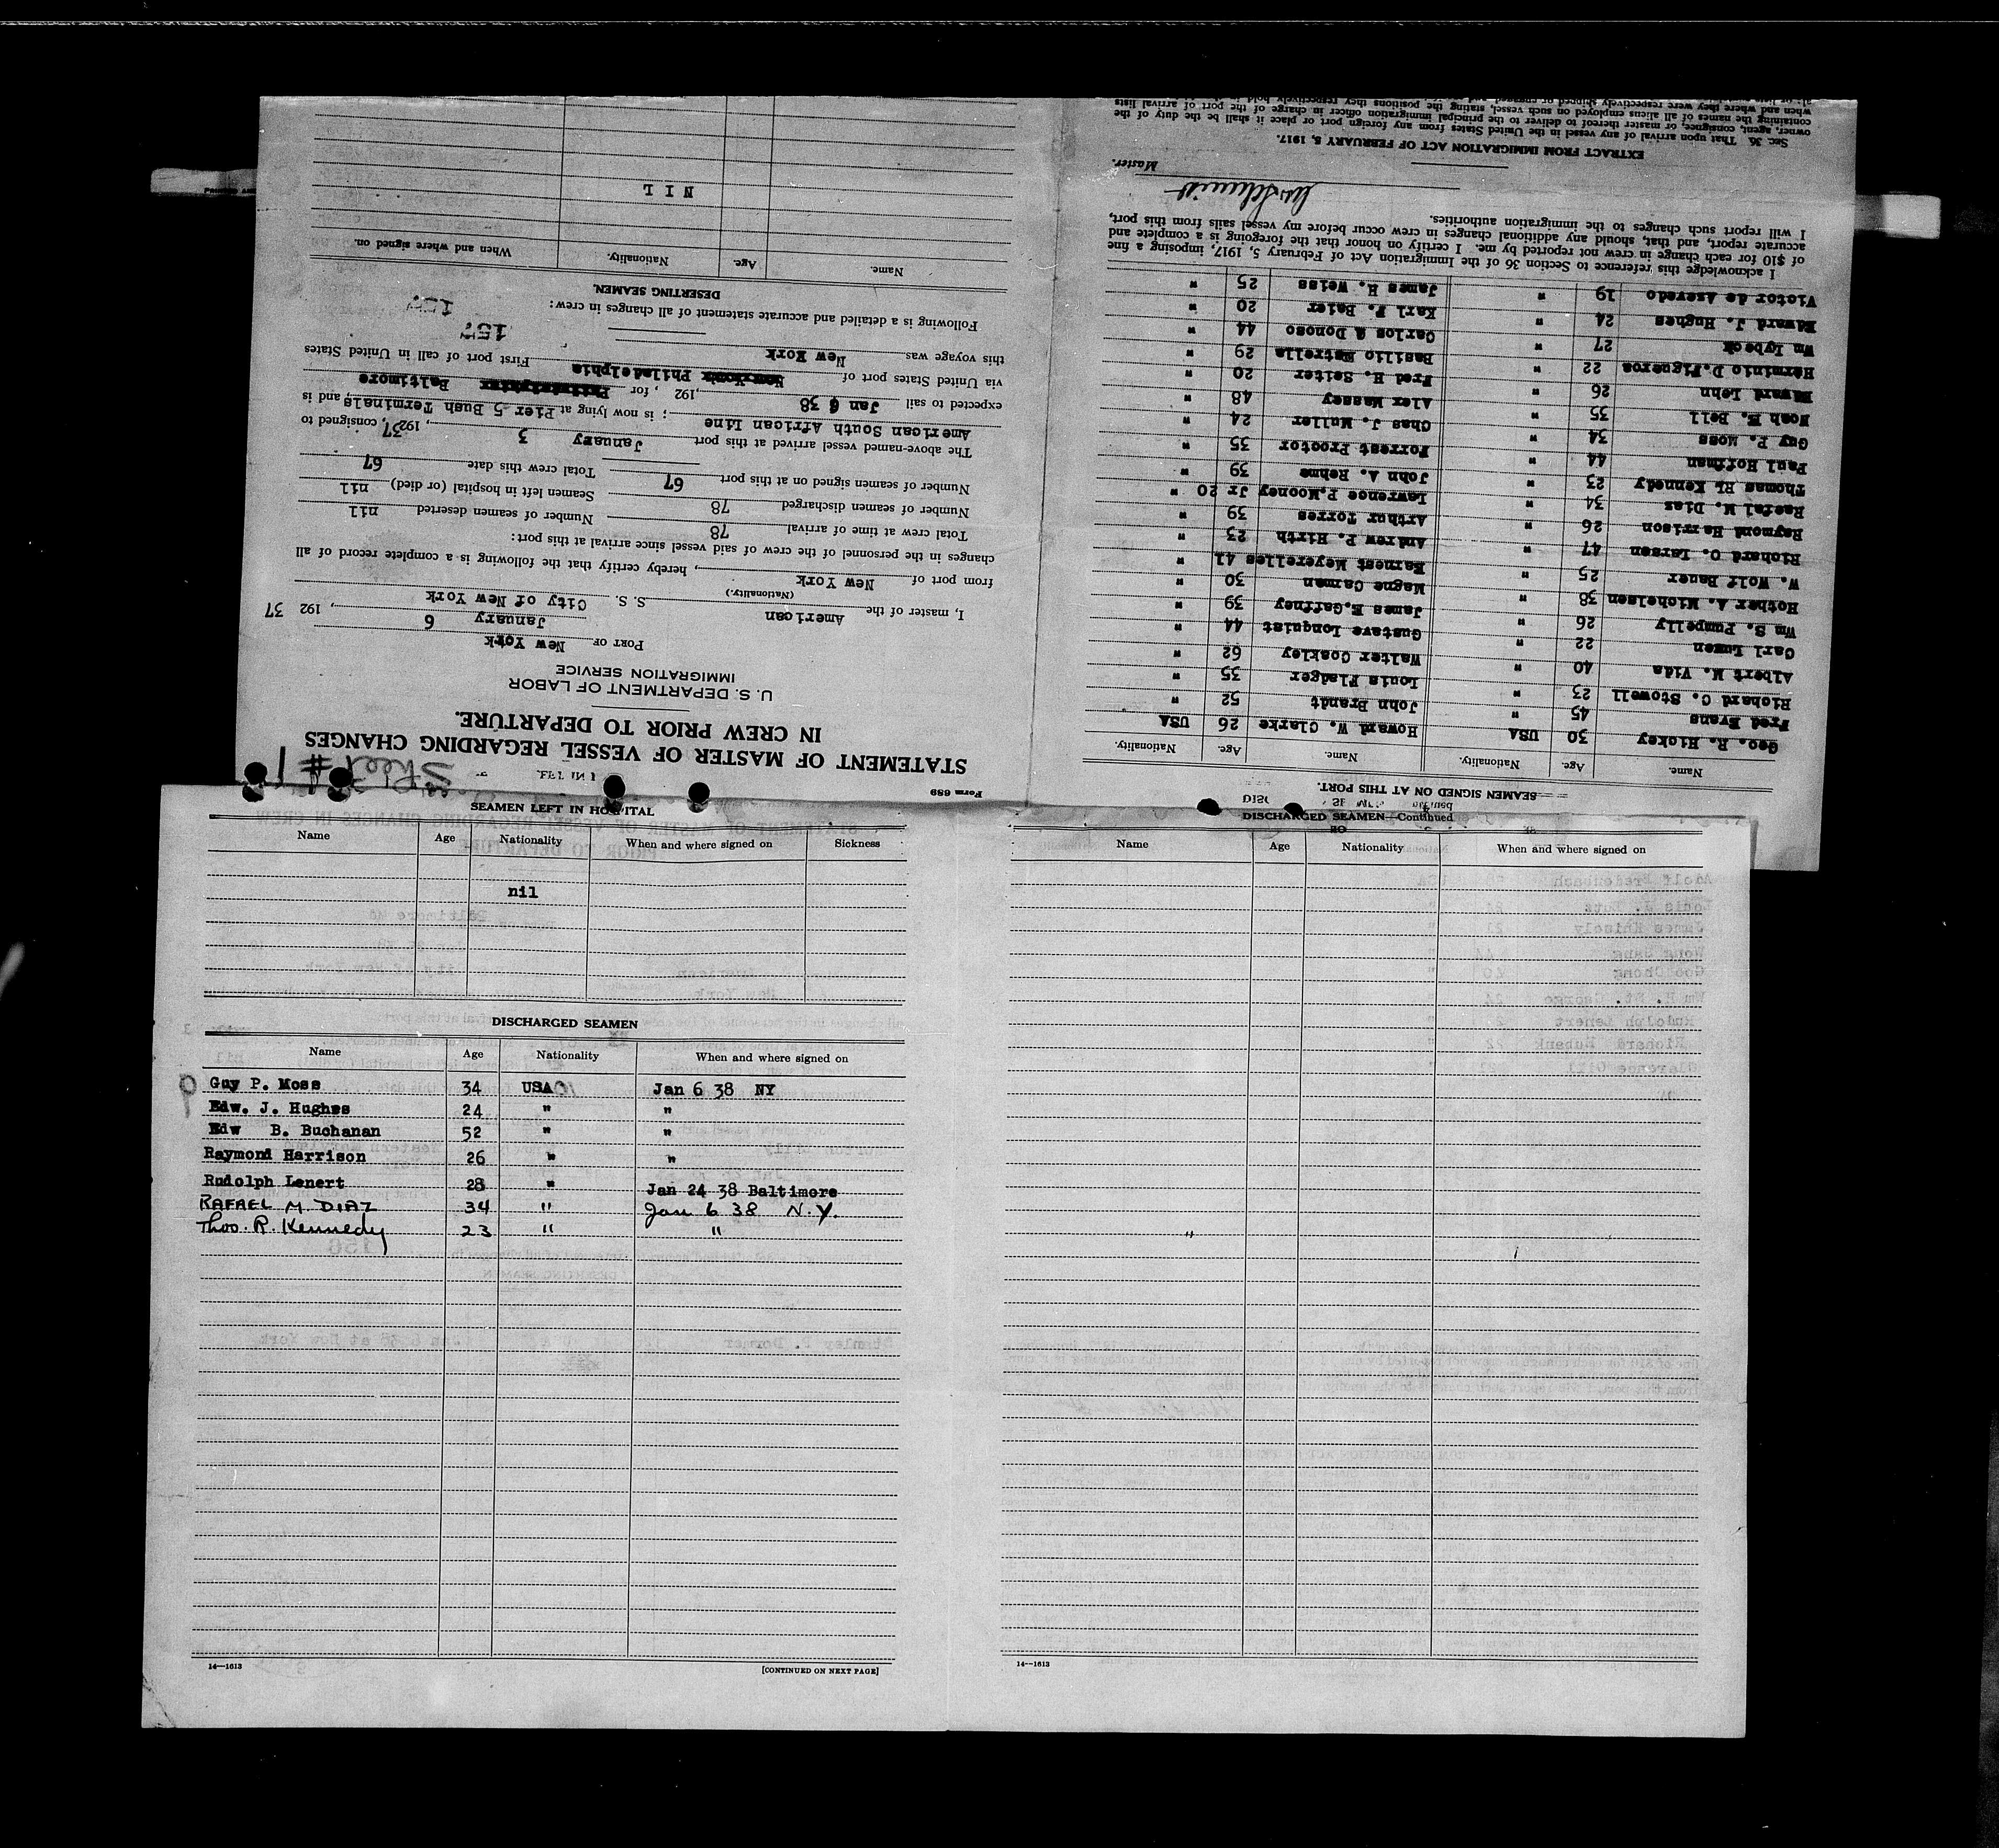 SEAMEN LEFT IN HOSPITAL
Name Age Nationality When and where signed on Sickness
nil
DISCHARGED SEAMEN
Name Age Nationality When and where signed on
Guy P. Moss 34 USA Jan 6 38 NY
Edw. J. Hughes 24 " "
Edw B. Buchanan 52 " "
Raymond Harrison 26 " "
Rudolph Lenert 28 " Jan 24 38 Baltimore
RAFAEL M DIAZ 34 " Jan 6 38 N.Y.
Thos. R. Kennedy 23 " "
14—1613 [CONTINUED ON NEXT PAGE]
DISCHARGED SEAMEN—Continued
Name Age Nationality When and where signed on
"
14—1613
Form 689
Sheet #1
STATEMENT OF MASTER OF VESSEL REGARDING CHANGES
IN CREW PRIOR TO DEPARTURE.
U. S. DEPARTMENT OF LABOR
IMMIGRATION SERVICE
PORT OF New York
January 6, 192 37
I, master of the American S. S. City of New York
(Nationality.)
from port of New York, hereby certify that the following is a complete record of all
changes in the personnel of the crew of said vessel since arrival at this port:
Total crew at time of arrival 78 Number of seamen deserted nil
Number of seamen discharged 78 Seamen left in hospital (or died) nil
Number of seamen signed on at this port 67 Total crew this date 67
The above-named vessel arrived at this port January 3, 192 37, consigned to
American South African Line; is now lying at Pier 5 Bush Terminals, and is
expected to sail Jan 6 38, 192 , for Philadelphia Baltimore
via United States port of New York Philadelphia First port of call in United States
this voyage was New York
157
157
Following is a detailed and accurate statement of all changes in crew:
DESERTING SEAMEN.
Name. Age. Nationality. When and where signed on.
NIL
SEAMEN SIGNED ON AT THIS PORT.
Name. Age. Nationality. Name. Age. Nationality.
Geo. R. Hickey 30 USA Howard W. Clarke 26 USA
Fred Evans 45 " John Brandt 52 "
Richard C. Stowell 23 " Louis Pladger 35 "
Albert M. Vida 40 " Walter Coakley 62 "
Carl Luzen 22 " Gustave Lonquist 44 "
Wm S. Pumpelly 26 " James E. Gaffney 39 "
Hother A. Michelsen 38 " Magne Caman 30 "
W. Wolf Bauer 25 " Earnest Meyerelles 41 "
Richard O. Larsen 47 " Andrew P. Hirth 23 "
Raymond Harrison 26 " Arthur Torres 39 "
Rafael M. Dias 34 " Lawrence P. Mooney Jr 20 "
Thomas RL Kennedy 23 " John A. Rehme 39 "
Paul Hoffman 44 " Forrest Proctor 35 "
Guy P. Moss 34 " Chas J. Muller 24 "
Noah E. Bell 35 " Alex Massey 48 "
Edward Lehn 26 " Fred H. Seiter 20 "
Herminio D. Figueroa 22 " Basilio Estrella 29 "
Wm Lybeck 27 " Carlos A Donoso 44 "
Edward J. Hughes 24 " Karl F. Baier 20 "
Victor de Azevedo 19 " James H. Weiss 25 "
I acknowledge this reference to Section 36 of the Immigration Act of February 5, 1917, imposing a fine
of $10 for each change in crew not reported by me. I certify on honor that the foregoing is a complete and
accurate report, and that, should any additional changes in crew occur before my vessel sails from this port,
I will report such changes to the immigration authorities.
Master.
EXTRACT FROM IMMIGRATION ACT OF FEBRUARY 5, 1917.
Sec. 36. That upon arrival of any vessel in the United States from any foreign port or place it shall be the duty of the
owner, agent, consignee, or master thereof to deliver to the principal immigration officer in charge of the port of arrival lists
containing the names of all aliens employed on such vessel, stating the positions they respectively hold in
when and where they were respectively shipped or engaged, and